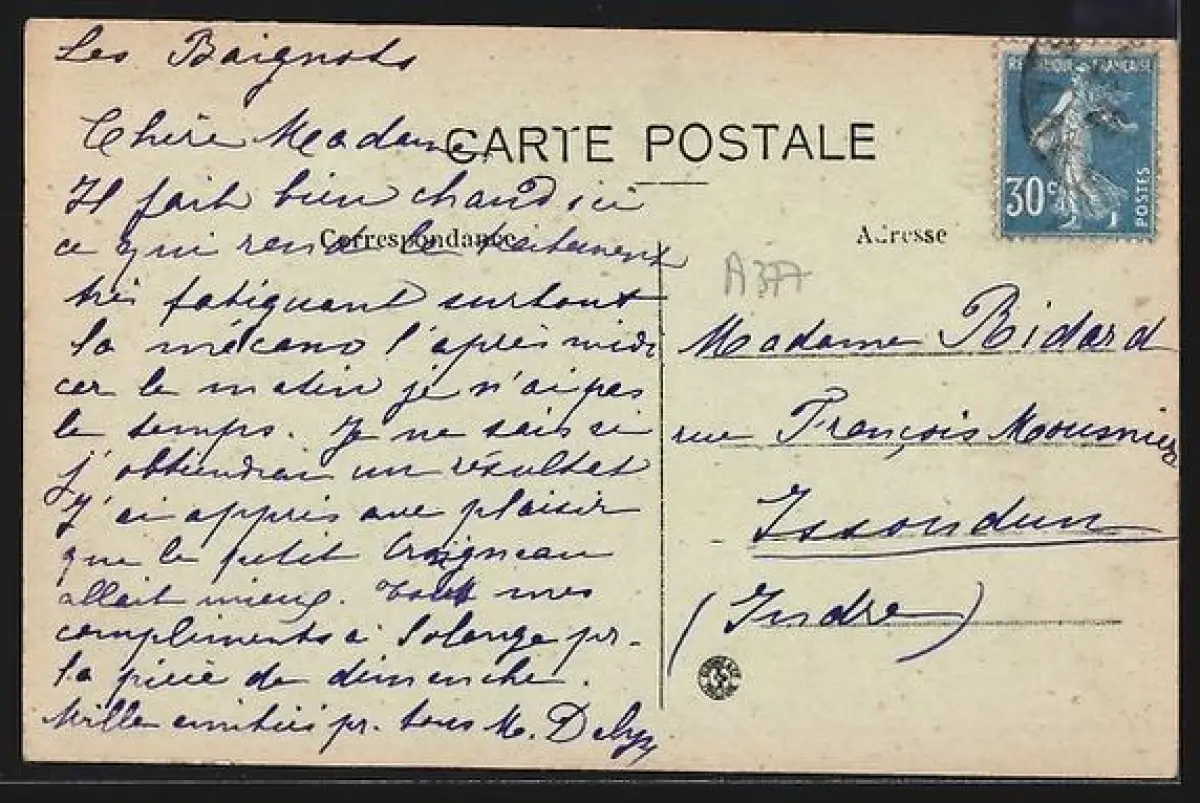 Les Baignots
Chère Madame
CARTE POSTALE
Il fait bien chaud ici
Correspondance
ce qui rend le traitement
très fatiguant surtout
la mécano l'après midi
car le matin je n'ai pas
le temps. Je ne sais si
j'obtiendrai un résultat
J'ai appris avec plaisir
que le petit
allait mieux. Tous mes
compliments à Solange pr.
la pièce de dimanche.
Mille amitiés pr. tous M.
REPUBLIQUE FRANÇAISE
30c
POSTES
Adresse
A377
Madame Bidard
rue François Mousnier
Issoudun
(Indre)